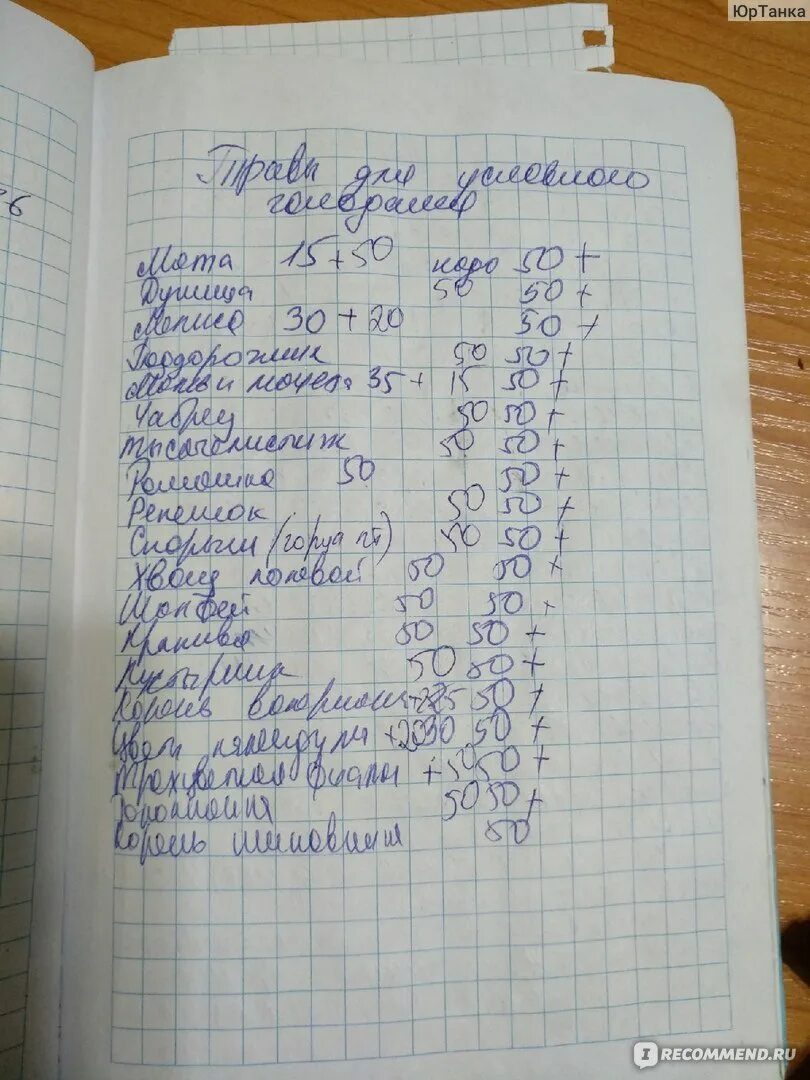 ЮрТанка
Травы для условного
голодания
Мята 15+50 надо 50 +
Душица 50 50 +
Мелиса 30 + 20 50 +
Подорожник 50 50 +
Мать и мачеха 35 + 15 50 +
Чабрец 50 50 +
тысячелистник 50 50 +
Ромашка 50 50 +
Репешок 50 50 +
Спорыш (горца пт) 50 50 +
Хвощ полевой 50 50 +
Шалфей 50 50 +
Крапива 50 50 +
Пустырник 50 50 +
Корень валерианы 50 +
Цветы календулы +20 30 50 +
Трехцветная фиалка +50 50 +
50 50 +
Корень шиповника 50
6
IRECOMMEND.RU